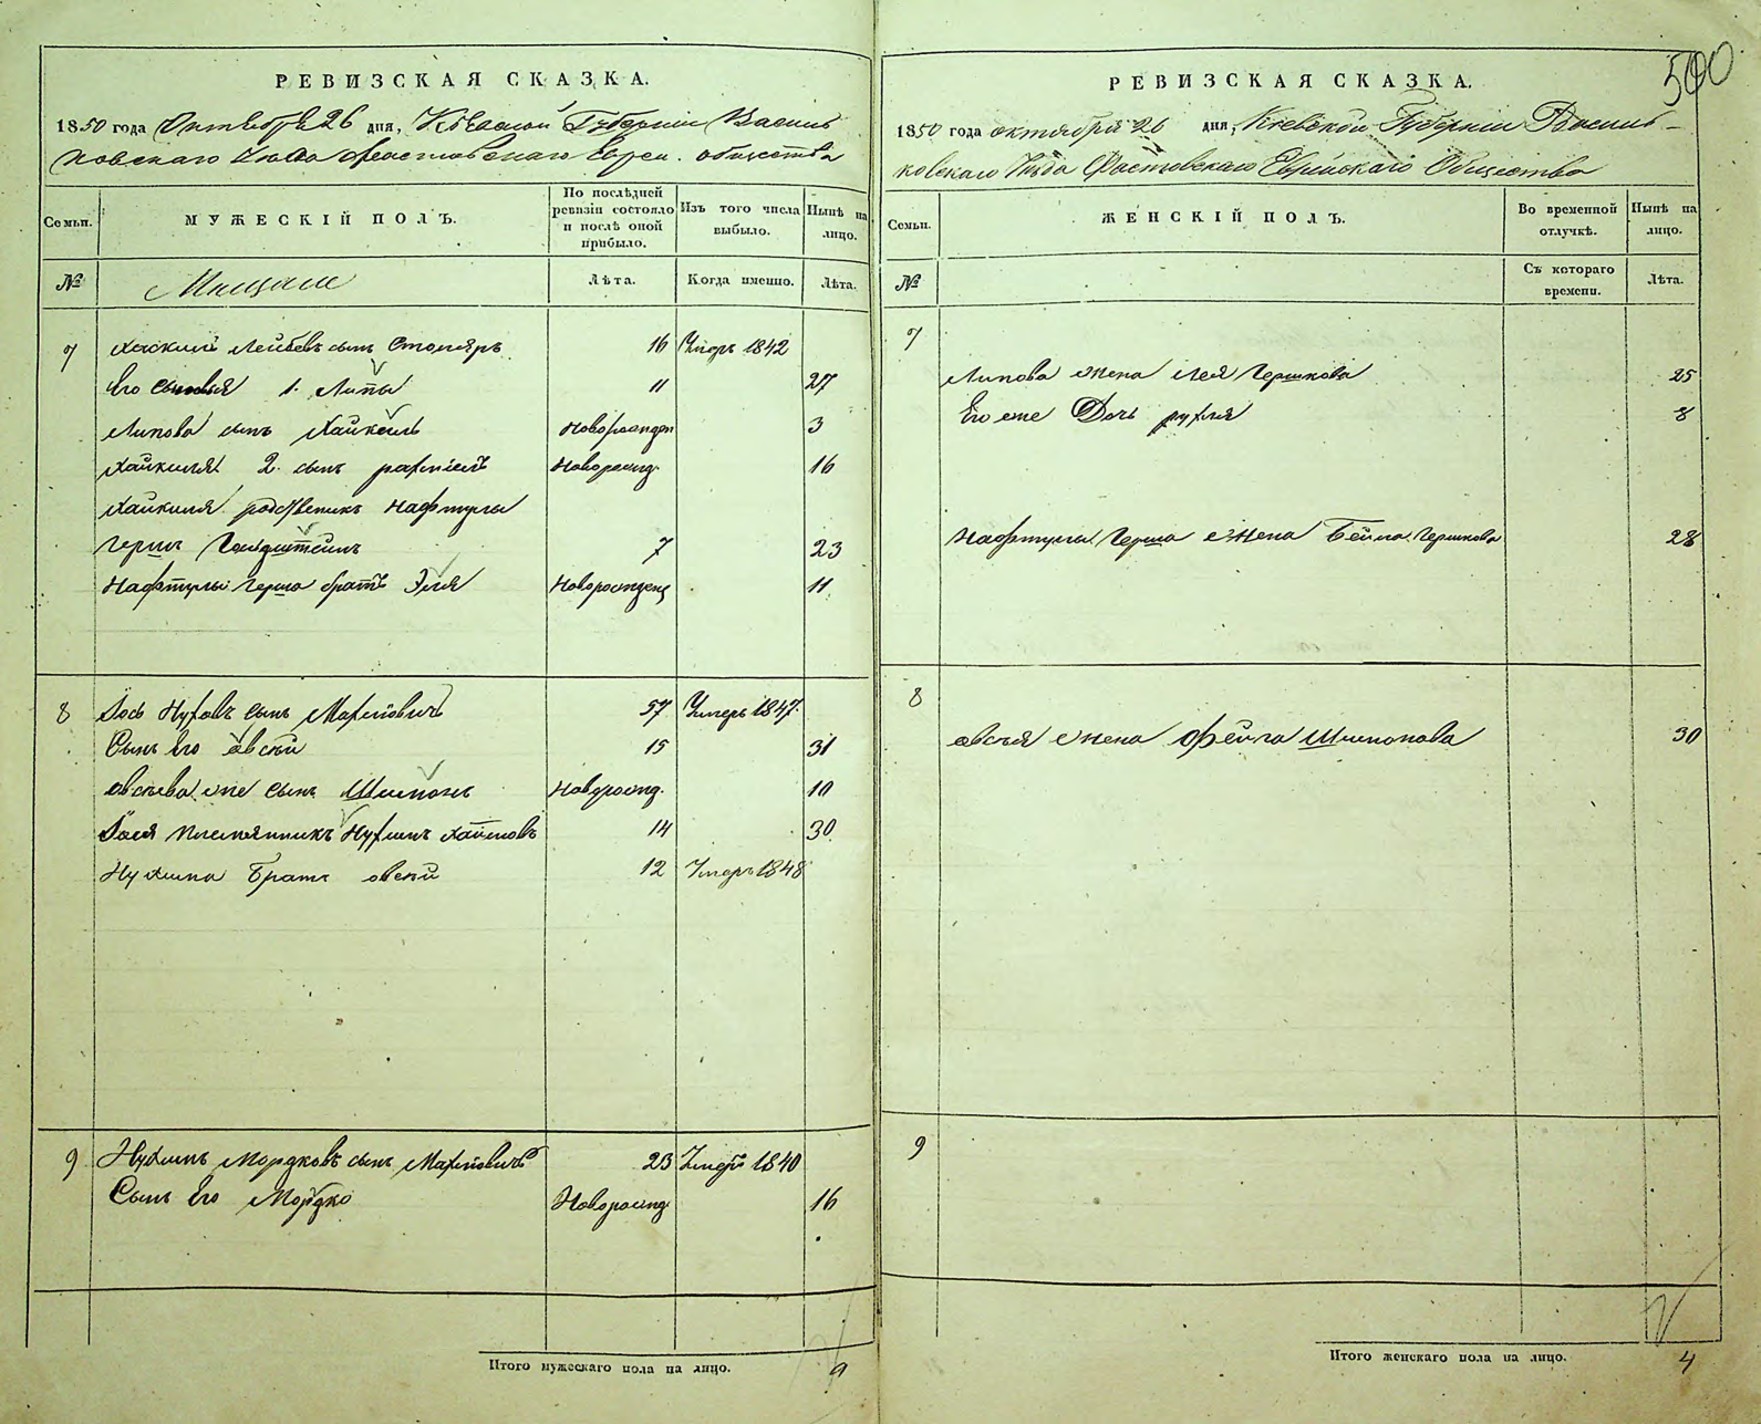 РЕВИЗСКАЯ СКАЗКА.
1850 года Октября 26 дня, Кіевской Губерніи Василь
ковскаго Уѣзда Фастовскаго Еврей. общества
Семьи.
МУЖЕСКІЙ ПОЛЪ.
По послѣдней
ревизіи состояло
и послѣ оной
прибыло.
Изъ того числа
выбыло.
Нынѣ на
лицо.
№
Мещане
Лѣта.
Когда именно.
Лѣта.
7
Хаскиль Лейбовъ сынъ Столяръ 16 Умеръ 1842
Его сыновья 1. Липа 11 27
Липова сынъ Хайкель Новорожден 3
Хайкиля 2 сынъ Рахмиель Новорожд. 16
Хайкиля родственикъ Нафтула
Герш Гольдштейнъ 7 23
Нафтулы Герша братъ Эля Новорожден 11
8 Іось Нуховъ сынъ Махновичъ 57 Умеръ 1847.
Сынъ Его Овсѣй 15 31
Овсѣева же сынъ Шимонъ Новорожд. 10
Іося племянникъ Нухимъ Хаимовъ 14 30
Нухима Братъ Овсѣй 12 Умеръ 1848
9 Нухимъ Мордковъ сынъ Махновичъ 23 Умеръ 1840
Сынъ Его Мордко Новорожд 16
Итого мужескаго пола на лицо. 9
500
РЕВИЗСКАЯ СКАЗКА.
1850 года октября 26 дня, Кіевской Губерніи Василь-
ковскаго Уѣзда Фастовскаго Еврейскаго Общества
Семьи.
ЖЕНСКІЙ ПОЛЪ.
Во временной
отлучкѣ.
Нынѣ на
лицо.
№
Съ котораго
времени.
Лѣта.
7
Липова жена Лея Гершкова 25
Его же Дочь Рухля 8
Нафтулы Герша жена Бейла Гершкова 28
8
Овсѣя жена Фейга Шимонова 30
9
Итого женскаго пола на лицо. 4